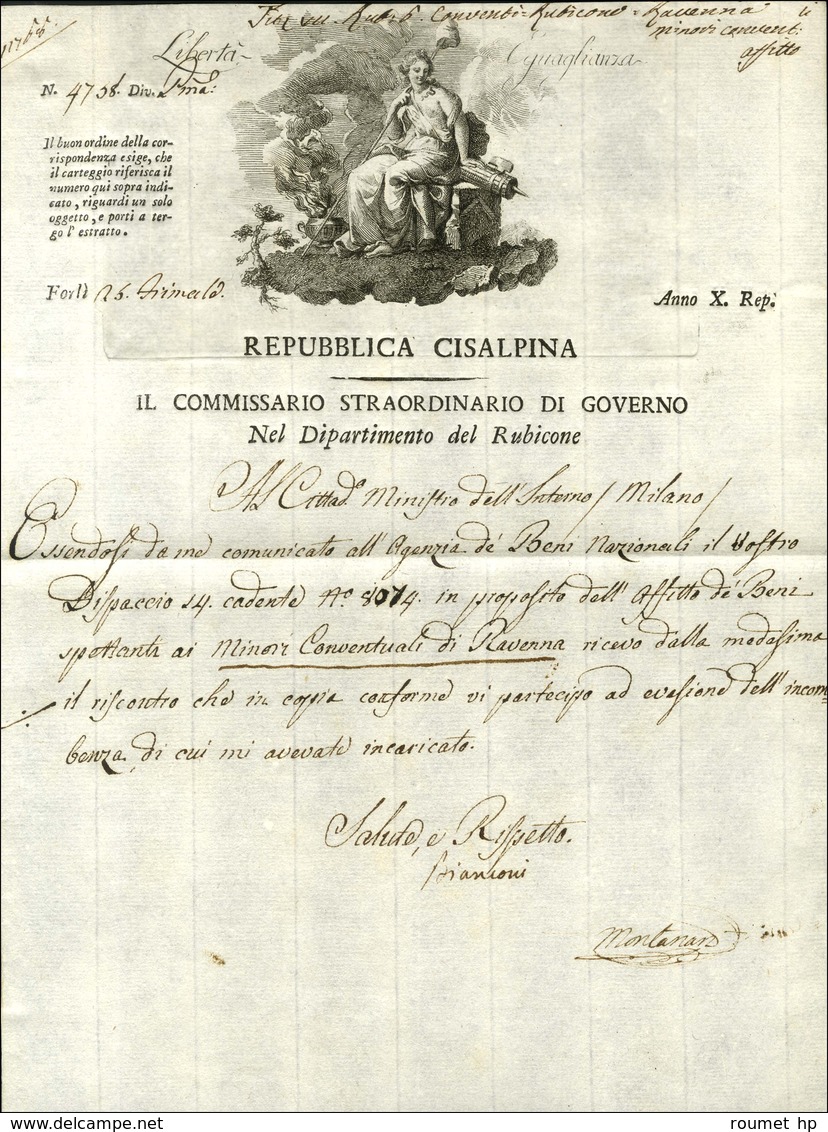 Rubicone = Ravenna
minori convent:
affitto
Libertà Eguaglianza
N. 4738. Div.
Il buon ordine della cor-
rispondenza esige, che
il carteggio riferisca il
numero qui sopra indi-
cato, riguardi un solo
oggetto, e porti a ter-
go l'estratto.
Forlì 25. Frimale.
Anno X. Rep.
REPUBBLICA CISALPINA
IL COMMISSARIO STRAORDINARIO DI GOVERNO
Nel Dipartimento del Rubicone
Al Cittad.º Ministro dell'Interno / Milano /
Essendosi da me comunicato all'Agenzia de' Beni Nazionali il Vostro
Dispaccio 14. cadente Nº. 8074. in proposito dell'Affitto de' Beni
spettanti ai Minori Conventuali di Ravenna ricevo dalla medesima
il riscontro che in copia conforme vi partecipo ad evasione dell'incom=
benza, di cui mi avevate incaricato.
Salute, e Rispetto.
Bianconi
Montanari
roumet hp